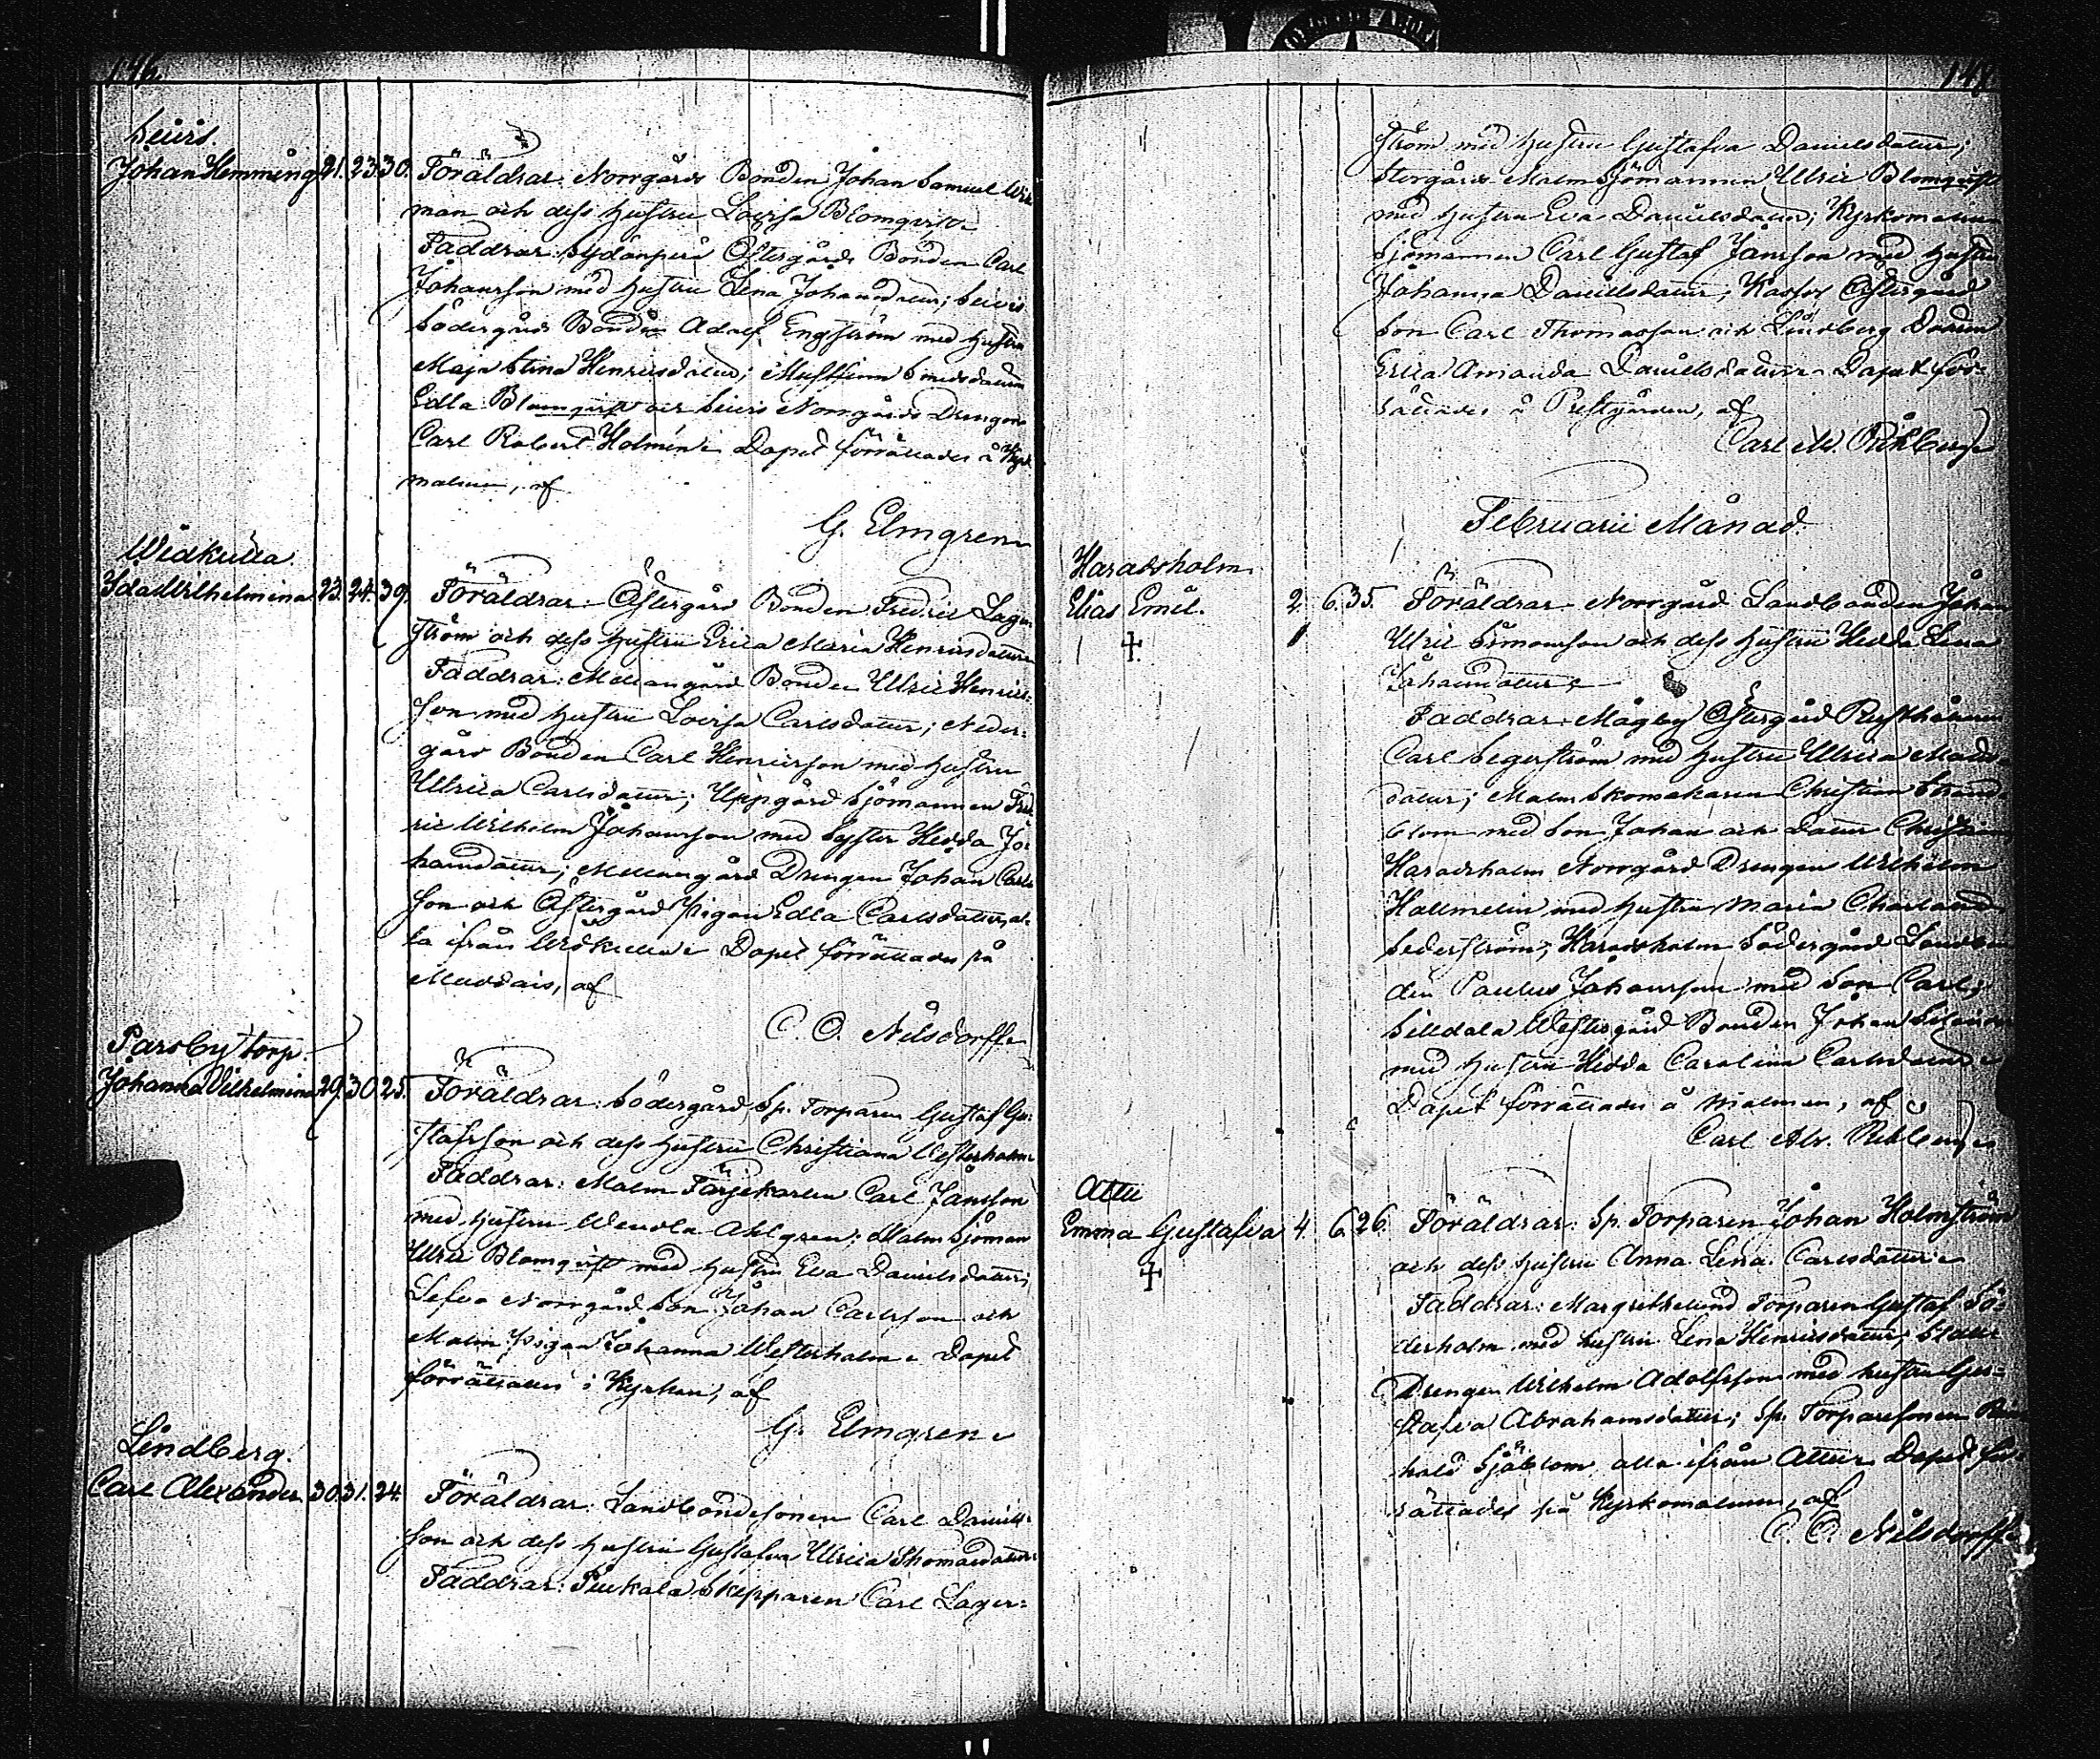 146
Seivis.
Johan Hemming 21. 23. 30. Föräldrar: Norrgårds Bonden Johan Samuel
man och dess hustru Lovisa Blomqvist
Faddrar: Sydänperä Östergårds Bonden Carl
Johansson med hustru Lena Johansdotter; Seivis
Södergårds Bonden Adolf Engström med hustru
Maja Stina Henricsdotter; Smedsdottren
Edla Blomqvist och Seivis Norrgårds Drengen
Carl Robert Holmén. Dopet förrättades å Kyrk
malmen, af
G. Elmgren.
Widkulla
Ida Wilhelmina. 23. 24. 39. Föräldrar: Östergård Bonden Fredric Lager
ström och dess hustru Erica Maria Henricsdotter.
Faddrar: Mellangård Bonden Ulric Henrics-
son med hustru Lovisa Carlsdotter; Neder-
gård Bonden Carl Henricsson med hustru
Ulrica Carlsdotter; Uppgård Sjömannen Fred
ric Wilhelm Johansson med Syster Hedda Jo-
hansdotter; Mellangård Drengen Johan Carls
son och Östergård Pigan Edla Carlsdotter, al-
la ifrån Widkulla. Dopet förrättades på
af
C. O. Nilsdorff.
Parsby torp.
Johanna Vilhelmina 29. 30. 25. Föräldrar: Södergård Sp. Torparen Gustaf Gu-
stafsson och dess hustru Christiana Westerholm.
Faddrar: Malm Färjekarlen Carl Jansson
med hustru Wendla Ahlgren; Malm Sjöman
Ulric Blomqvist med hustru Eva Danielsdotter;
Norrgård Son Johan Carlsson och
Malm Pigan Johanna Westerholm. Dopet
förrättades i Kyrkan, af
G. Elmgren.
Lindberg.
Carl Alexander. 30. 31. 24. Föräldrar: Landbondesonen Carl Daniels-
son och dess hustru Gustafva Ulrica Thomasdotter.
Faddrar: Piukala Skepparen Carl Lager-
ström med hustru Gustafva Danielsdotter;
Storgårds Malm Sjömannen Ulric Blomqvist
med hustru Eva Danielsdotter; Kyrkomalms
Sjömannen Carl Gustaf Jansson med hustru
Johanna Danielsdotter; Östergård
Son Carl Thomasson och Lindberg Dottren
Erica Amanda Danielsdotter. Dopet för-
rättades å Prestgården, af
Carl
Februarii Månad.
Haradsholm
Elias Emil. 2. 6. 35. Föräldrar: Norrgård Landbonden Johan
Ulric Simonsson och dess hustru Hedda Lena
Johansdotter.
Faddrar: Mågby Östergård Rusthållaren
Carl Segerström med hustru Ulrica
dotter; Malm Skomakaren Christian Strand-
blom med Son Johan och Dotter
Haradsholm Norrgård Drengen Wilhelm
Hallmelin med hustru Maria Charlotta
Sederström; Haradsholm Södergård Landbon
den Paulus Johansson med Son Carl;
Silldala Westergård Bonden Johan
med hustru Hedda Carolina Carlsdotter.
Dopet förrättades å Malmen, af
Carl
Attu
Emma Gustafva 4. 6. 26. Föräldrar: Sp. Torparen Johan Holmström
och dess hustru Anna Lena Carlsdotter.
Faddrar: Margrethelund Torparen Gustaf Sö-
derholm med hustru Lena Henricsdotter;
Drengen Wilhelm Adolfsson med hustru Gus-
tafva Abrahamsdotter; Sp. Torparesonen
Sjöblom, alla ifrån Attu. Dopet för-
rättades på Kyrkomalmen, af
C. O. Nilsdorff.